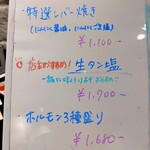 ・特選レバー焼き
(にんにく醤油、にんにくごま塩)
¥1,100-
店主おすすめ! 生タン塩
¥1,900-
・ホルモン3種盛り
¥1,680-